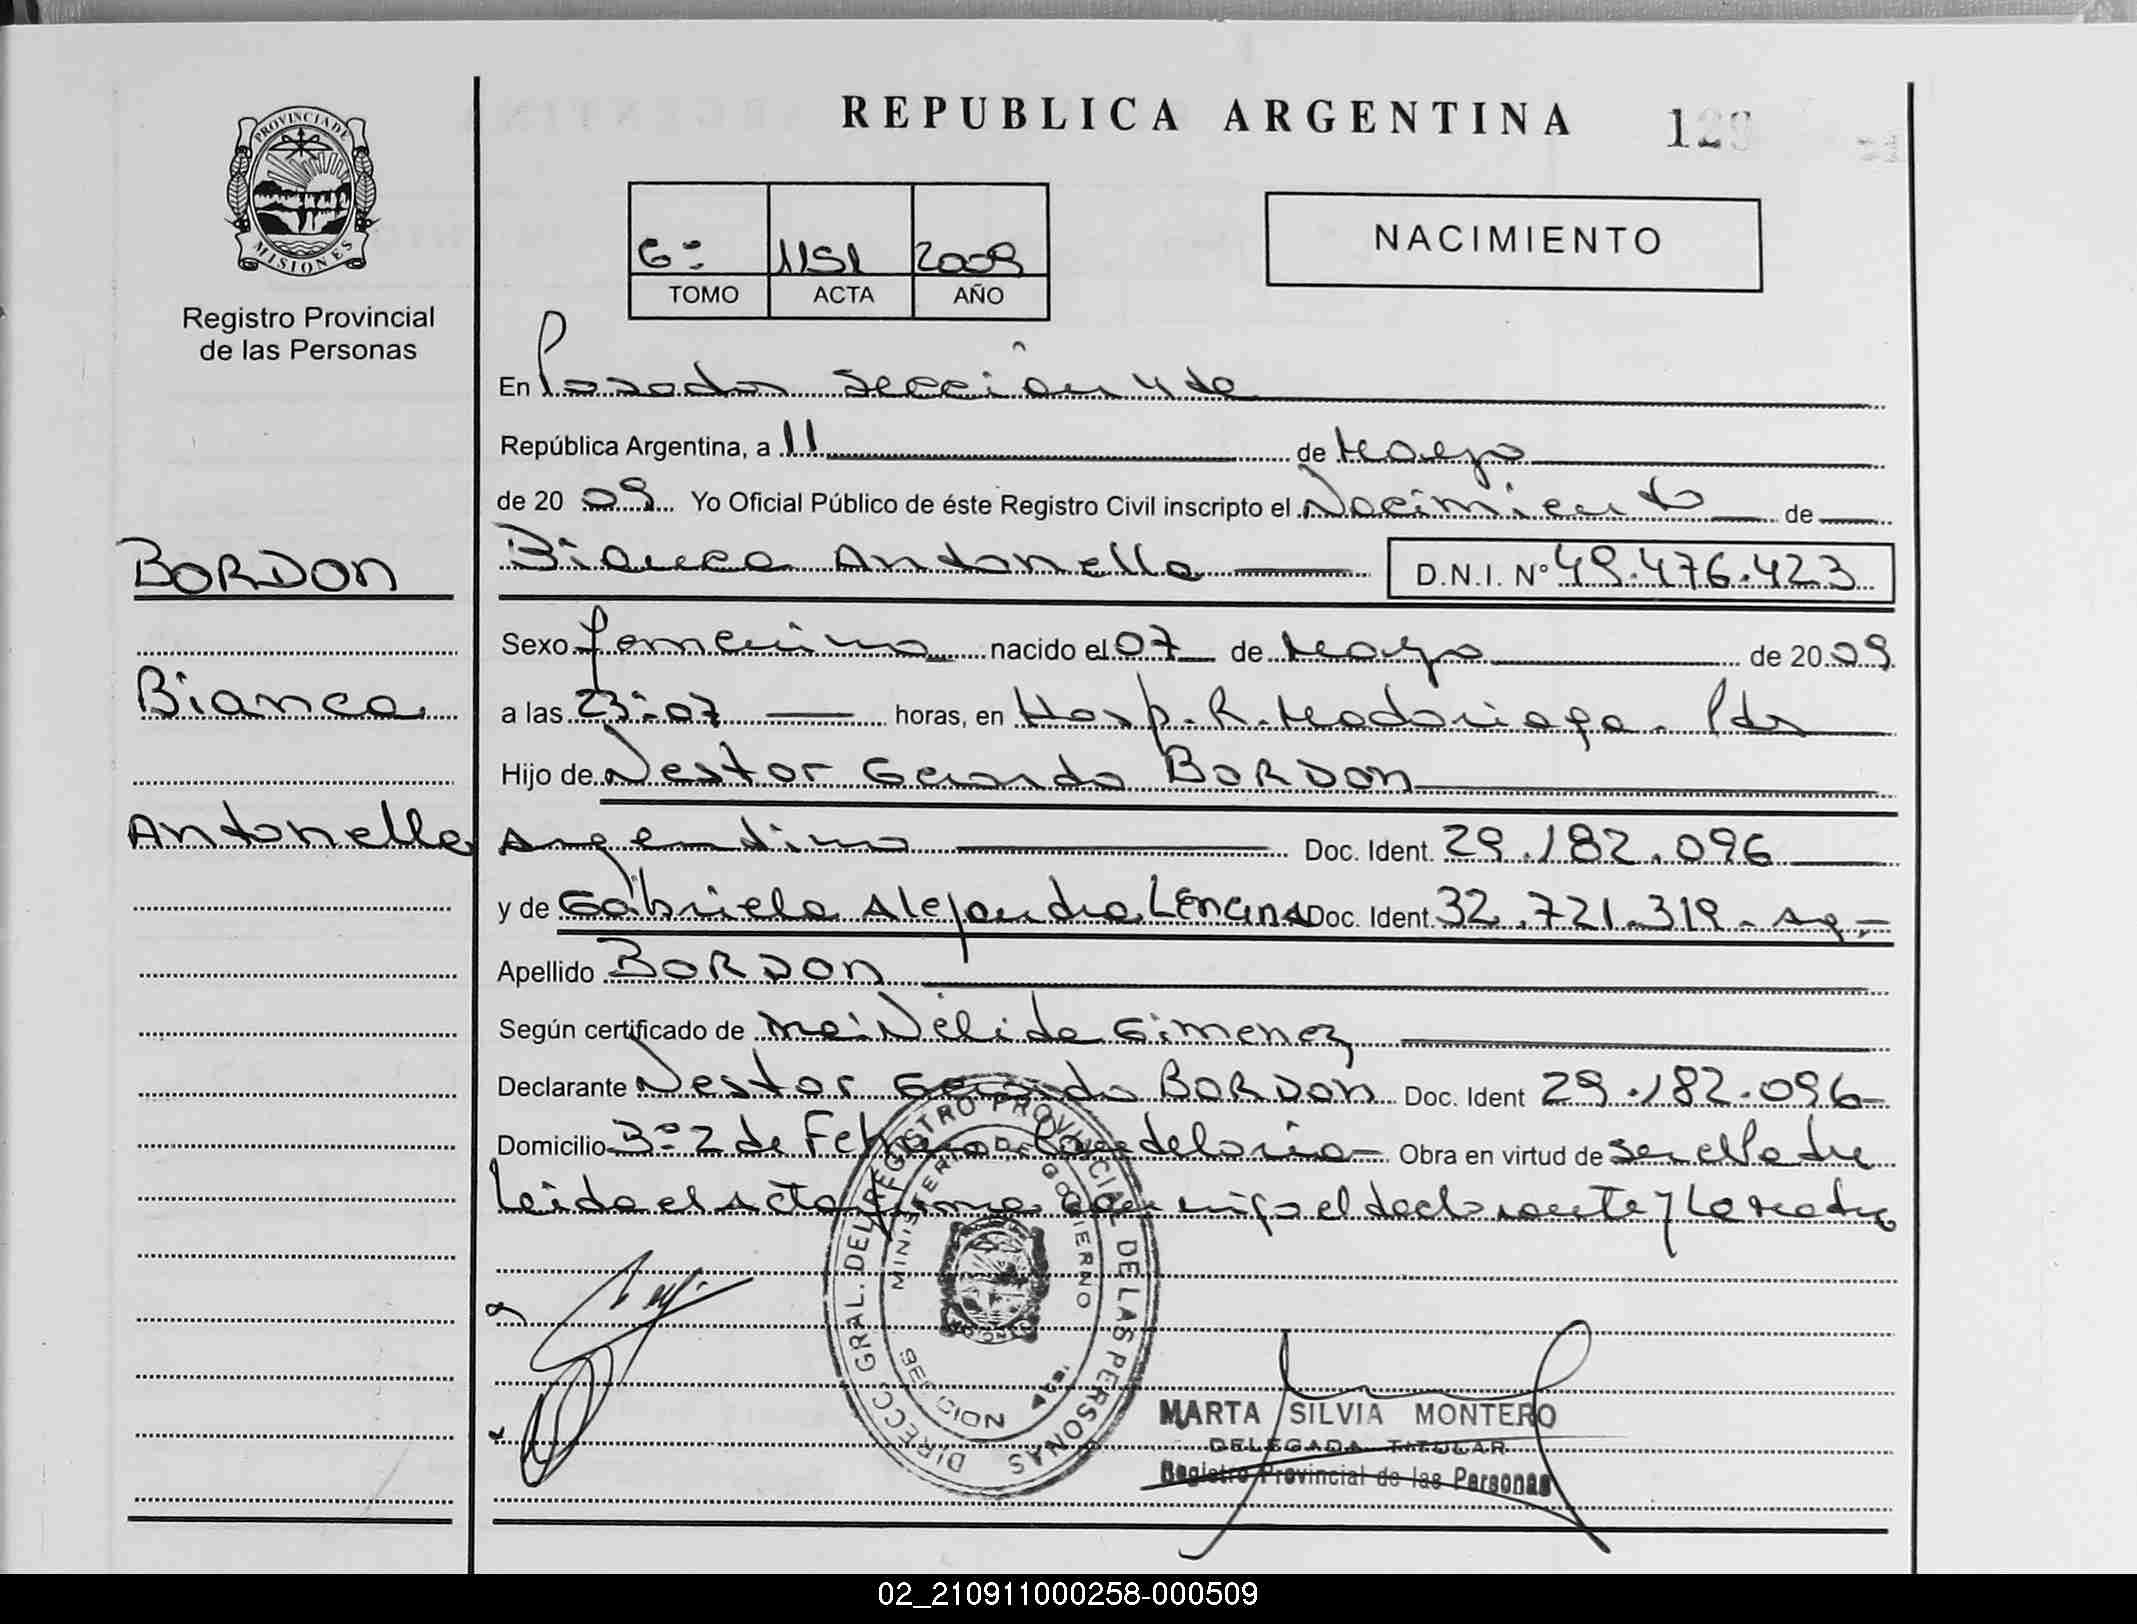 REPUBLICA ARGENTINA
PROVINCIA DE
MISIONES
Registro Provincial
de las Personas
6º 1151 2009
TOMO ACTA AÑO
NACIMIENTO
En Posadas sección 4 ta
República Argentina, a 11 de Mayo
de 20 09 Yo Oficial Público de éste Registro Civil inscripto el Nacimiento de
BORDON
Bianca Antonella D.N.I. Nº 49.476.423
Sexo femenino nacido el 07 de Mayo de 20 09
Bianca
a las 23:07 horas, en Hosp. R. Madariaga. Pdas
Hijo de Nestor Gerardo BORDON
Antonella
Argentino Doc. Ident. 29.182.096
y de Gabriela Alejandra Lencina Doc. Ident. 32.721.319 - Arg.-
Apellido BORDON
Según certificado de Nelida Gimenez
Declarante Nestor Gerardo BORDON Doc. Ident 29.182.096
Domicilio 3º 2 de Febrero Candelaria Obra en virtud de ser el Padre
Leida el acta firma conmigo el declarante y La madre
DIRECC. GRAL. DEL REGISTRO PROVINCIAL DE LAS PERSONAS
MINISTERIO DE GOBIERNO
MISIONES
SECCION
MARTA SILVIA MONTERO
DELEGADA TITULAR
Registro Provincial de las Personas
02_210911000258-000509